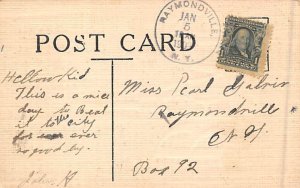 RAYMONDVILLE,
JAN
5
N. Y.
POST CARD
Hellow Kid
This is a nice
day to Beat
it to the city
for ever
so good by.
Miss Pearl
Raymondville
N Y
Box 92